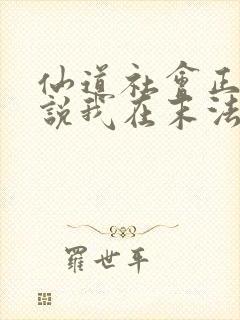 仙道社會正
說我在末法
羅世平